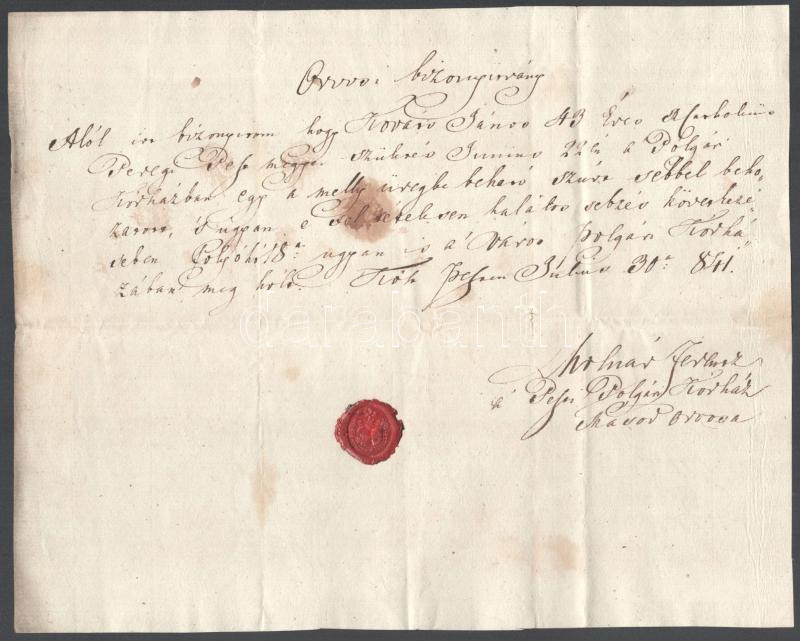 Orvosi bizonyitvány
Alól irt bizonyitom hogy Kováts János 43 Éves
Peregi Pest megyei születés Junius 22én a Polgári
Kórházban egy a melly üregbe beható szúrt sebbel beho-
zatott, 's ugyan e sebzés következé-
seben folyó hó 18á ugyan is a' város Polgári Kórhá-
zában meg holt. Költ Pesten Július 30án 841.
Molnár Ferencz
a' Pesti Polgári Kórház
Másod orvosa
darabanth